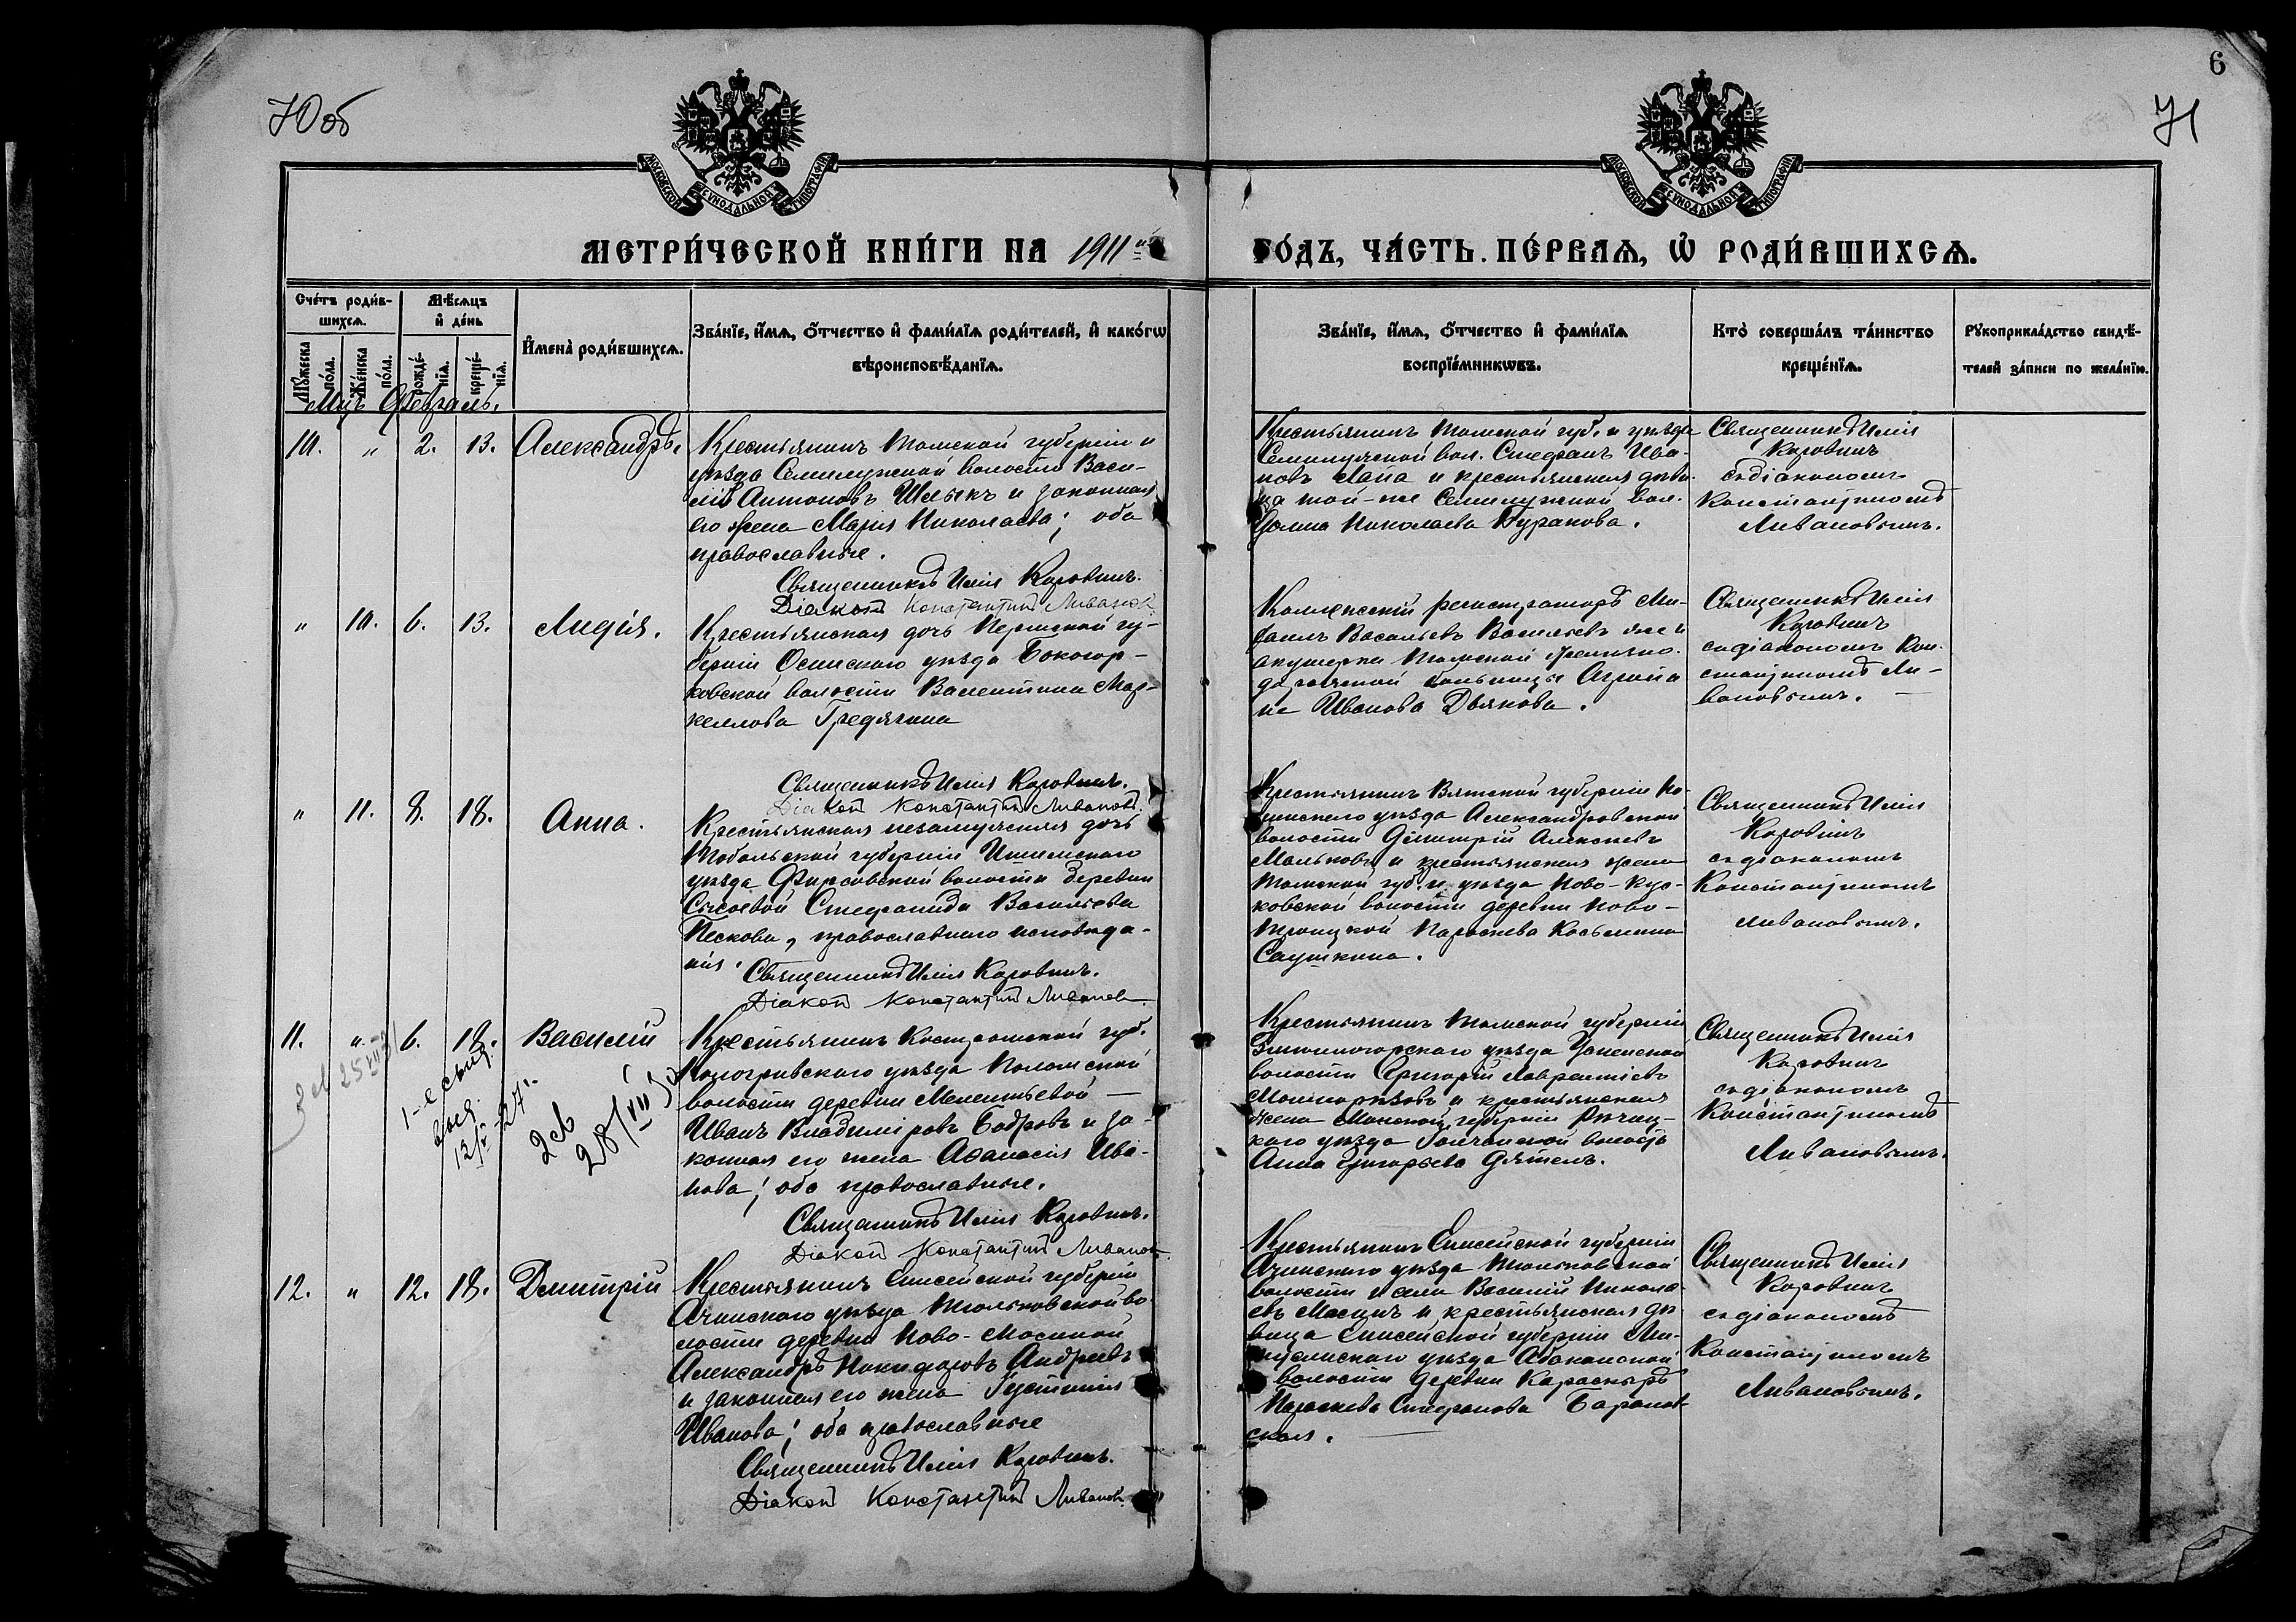 70об
6
71
МОСКОВСКОЙ СѴНОДАЛЬНОЙ ТИПОГРАФІИ
МОСКОВСКОЙ СѴНОДАЛЬНОЙ ТИПОГРАФІИ
МЕТРИ́ЧЕСКОЙ КНИ́ГИ НА 1911й
ГО́ДЪ, ЧА́СТЬ ПЕ́РВАѦ, Ѡ҆ РОДИ́ВШИХСѦ.
Сче́тъ роди́в-
шихсѧ.
Мѣ́сѧцъ
и҆ де́нь
Мꙋ́жеска по́ла.
Же́нска по́ла.
рожде́-нїѧ.
креще́-нїѧ.
И҆мена̀ роди́вшихсѧ.
Зва́нїе, и҆́мѧ, ѻ҆́тчество и҆ фами́лїѧ роди́телей, и҆ како́гѡ
вѣроисповѣ́данїѧ.
Зва́нїе, и҆́мѧ, ѻ҆́тчество и҆ фами́лїѧ
воспрїе́мникѡвъ.
Кто̀ соверша́лъ та́инство
креще́нїѧ.
Рꙋкоприкла́дство свидѣ́-
телей за́писи по жела́нїю.
Мцъ Февраль.
10. " 2. 13. Александръ.
Крестьянинъ Томской губерніи и
уѣзда Семилужской волости Васи-
лій Антоновъ Шлыкъ и законная
его жена Марія Николаева; оба
православные.
Священникъ Илія Коровинъ.
Діаконъ Константинъ Ливановъ.
Крестьянинъ Томской губ. и уѣзда
Семилужской вол. Стефанъ Ива-
новъ Лапа и крестьянская дѣви-
ца той-же Семилужской вол.
Николаева Буракова.
Священникъ Илія
Коровинъ
съ діакономъ
Константиномъ
Ливановымъ.
" 10. 6. 13. Лидія.
Крестьянская дочь Пермской гу-
берніи Осинскаго уѣзда
ковской волости Валентина Мар-
келлова Гредягина
Священникъ Илія Коровинъ.
Діаконъ Константинъ Ливановъ.
Коллежскій регистраторъ Ми-
хаилъ Васильевъ Васильевъ же и
акушерка Томской
больницы
Иванова Дьякова.
Священникъ Илія
Коровинъ
съ діакономъ Кон-
стантиномъ Ли-
вановымъ.
" 11. 8. 18. Анна.
Крестьянская незамужняя дочь
Тобольской губерніи Ишимскаго
уѣзда Фирсовской волости деревни
Сысоевой Стефанида Васильева
Пескова, православнаго исповѣда-
нія.
Священникъ Илія Коровинъ.
Діаконъ Константинъ Ливановъ.
Крестьянинъ Вятской губерніи
уѣзда Александровской
волости Димитрій Алексѣевъ
Мальковъ и крестьянская жена
Томской губ. и уѣзда Ново-Кус-
ковской волости деревни Ново-
Троицкой Параскева Косьмина
Саушкина.
Священникъ Илія
Коровинъ
съ діакономъ
Константиномъ
Ливановымъ.
11. " 6. 18. Василій
1-е свид.
выд.
27г.
28/VII
Крестьянинъ Костромской губ.
Кологривскаго уѣзда Паломской
волости деревни Мелентьевой —
Иванъ Владиміровъ Бодровъ и за-
конная его жена Аѳанасія Ива-
нова; оба православные.
Священникъ Илія Коровинъ.
Діаконъ Константинъ Ливановъ.
Крестьянинъ Томской губерніи
Змѣиногорскаго уѣзда Успенской
волости Григорій Лаврентіевъ
и крестьянская
жена Минской губерніи Рѣчиц-
каго уѣзда волости
Анна Григорьева Дятелъ.
Священникъ Илія
Коровинъ
съ діакономъ
Константиномъ
Ливановымъ.
12. " 12. 18. Димитрій
Крестьянинъ Енисейской губерніи
Ачинскаго уѣзда Тюльковской во-
лости деревни Ново-Мосиной
Александръ Никифоровъ Андреевъ
и законная его жена Іустинія
Иванова; оба православные
Священникъ Илія Коровинъ.
Діаконъ Константинъ Ливановъ.
Крестьянинъ Енисейской губерніи
Ачинскаго уѣзда Тюльковской
волости и села Василій Никола-
евъ Масинъ и крестьянская дѣ-
вица Енисейской губерніи Ми-
нусинскаго уѣзда Абаканской
волости деревни
Параскева Стефанова Баранов-
ская.
Священникъ Илія
Коровинъ
съ діакономъ
Константиномъ
Ливановымъ.